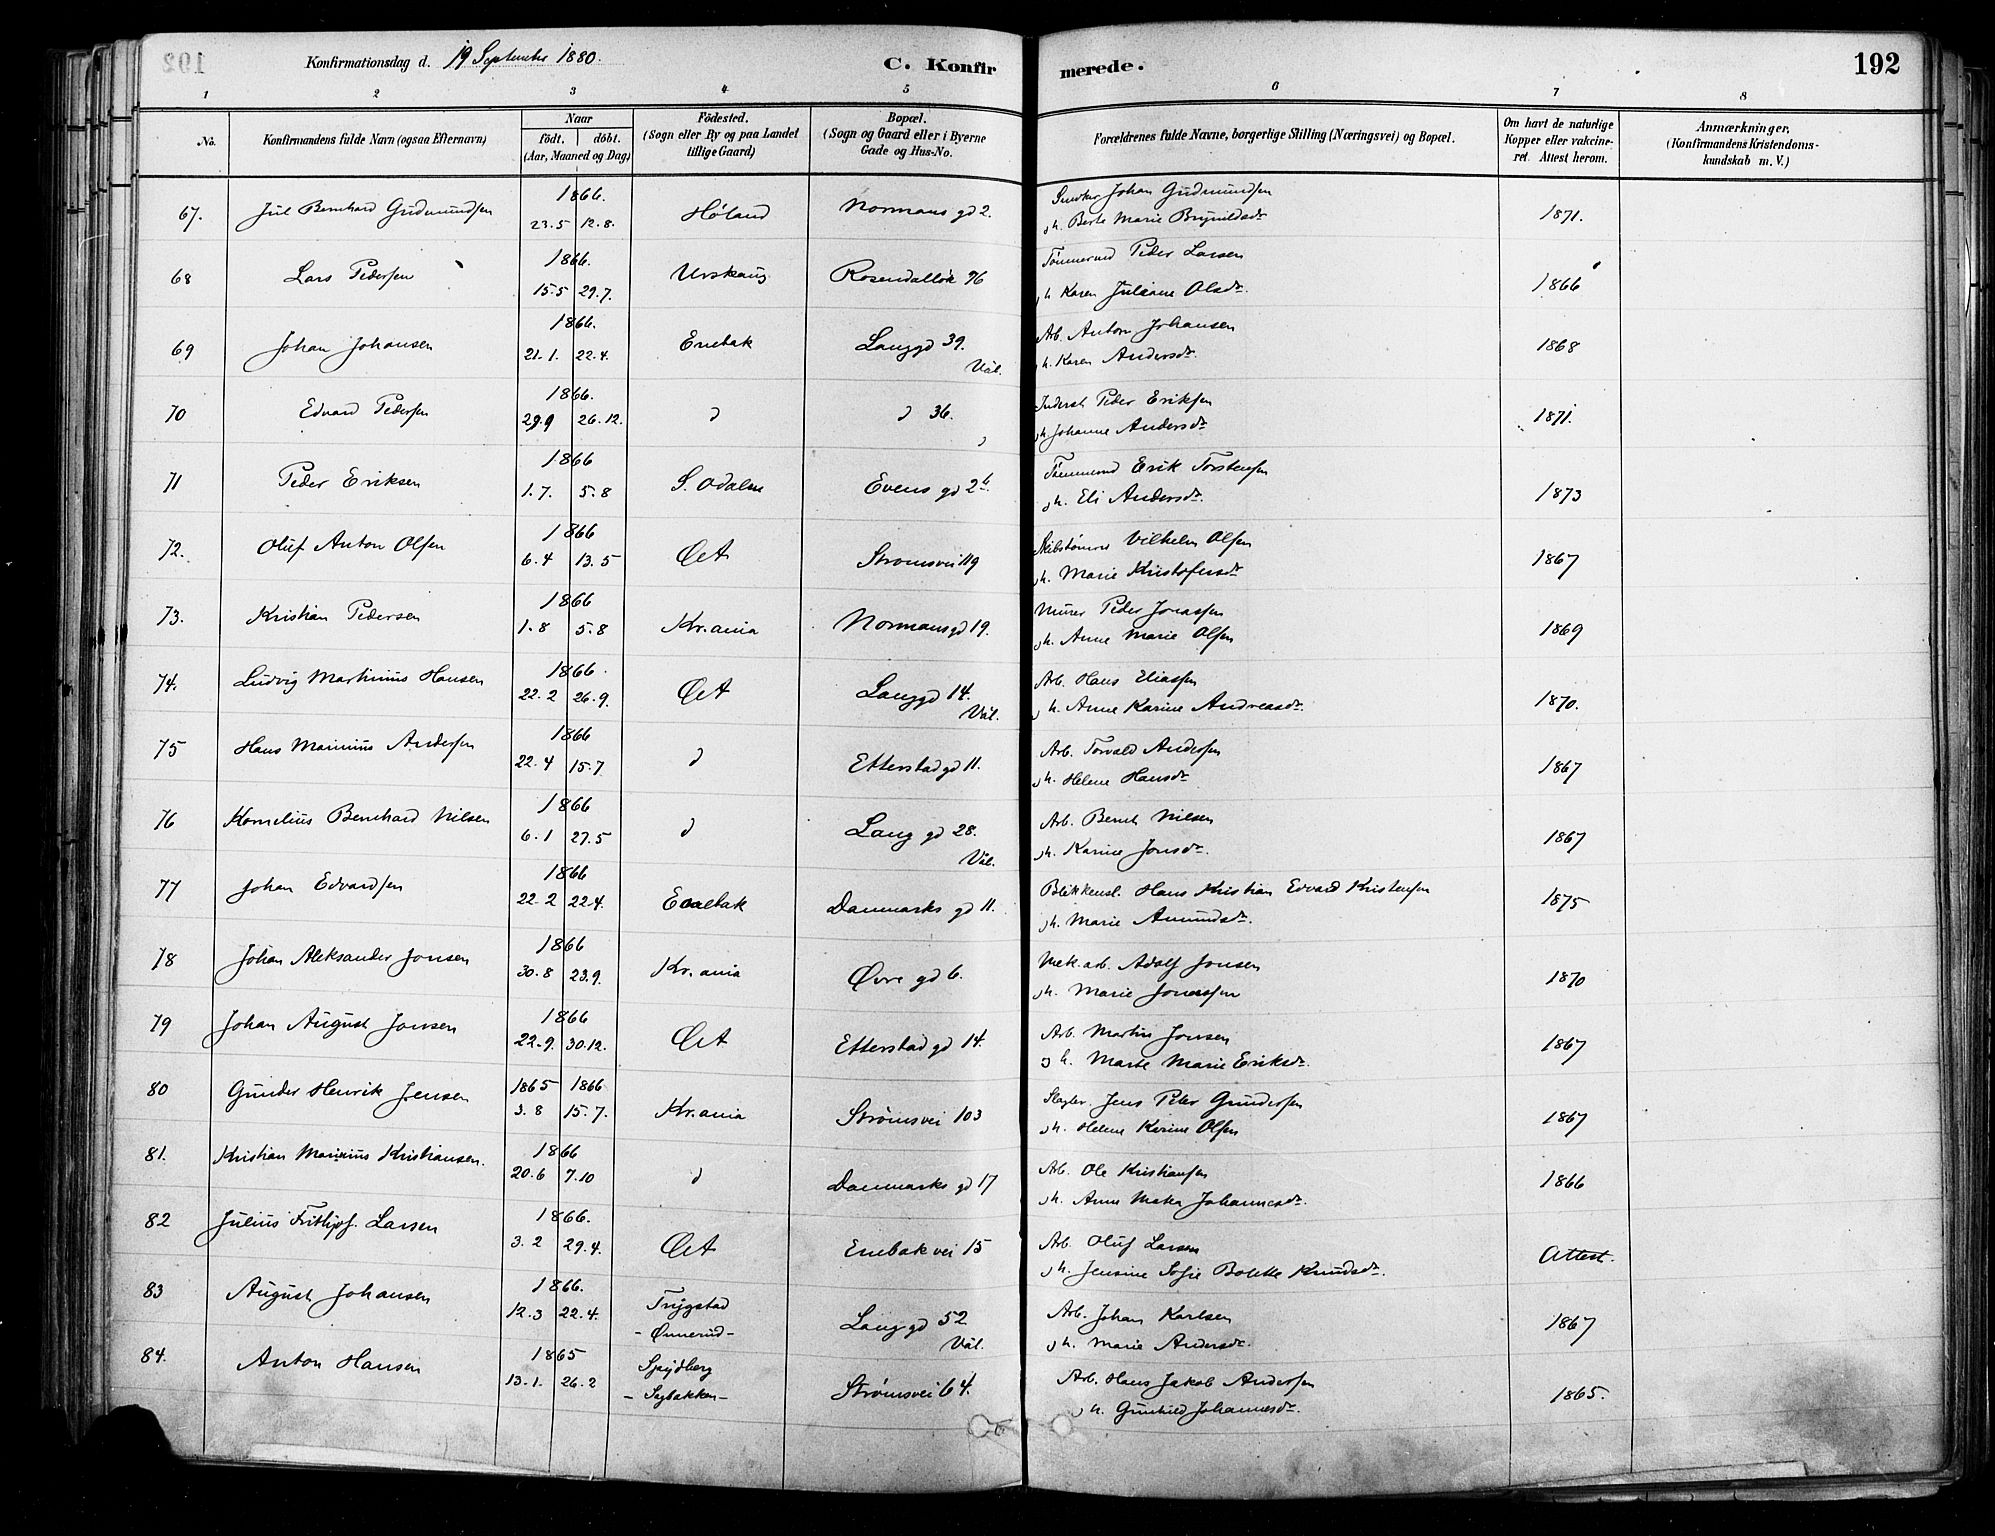 Konfirmationsdag d. 19 September 1880.
C. Konfirmerede.
192
1 2 3 4 5 6 7 8
No. Konfirmandens fulde Navn (ogsaa Efternavn) Naar födt. döbt. (Aar, Maaned og Dag) Födested. (Sogn eller By og paa Landet tillige Gaard) Bopæl. (Sogn og Gaard eller i Byerne Gade og Hus-No. Forældrenes fulde Navne, borgerlige Stilling (Næringsvei) og Bopæl. Om havt de naturlige Kopper eller vakcineret. Attest herom. Anmærkninger, (Konfirmandens Kristendomskundskab m. V.)
67. Jul Bernhard Gudmundsen 1866. 23.5 12.8. Høland Normans gd 2. Johan Gudmundsen 1871.
h. Berte Marie Brynildsdr
68 Lars Pedersen 1866. 15.5 29.7. Urskaug Rosendalløk 96 Tømmermd Peder Larsen 1866
h. Karen Juliane Olsdr.
69 Johan Johansen 1866. 21.1. 22.4. Enebak Langgd 39. Vål. Arb. Anton Johansen 1868
h. Karen Andersdr.
70 Edvard Pedersen 1866. 29.9 26.12. d d 36. d Inderst Peder Eriksen 1871.
h. Johanne Andersdr
71 Peder Eriksen 1866 1.7. 5.8 S. Odalen Evens gd 2b. Tømmermd Erik Torstensen 1873
h. Eli Andersdr.
72. Oluf Anton Olsen 1866 6.4 13.5 ØA Stromsvei 119 Skibstømrer Vilhelm Olsen 1867
h. Marie Kristofersdr
73. Kristian Pedersen 1866 1.8 5.8 Kr.ania Normansgd 19. Murer Peder Jonassen 1869
h. Anne Marie Olsen
74. Ludvig Martinius Hansen 1866. 22.2 26.9. ØA Langgd 14. Vål. Arb. Hans Eliassen 1870.
h. Anne Karine Andreasdr.
75 Hans Marinius Andersen 1866 22.4 15.7 d Etterstad gd 11. Arb. Torvald Andersen 1867
h. Helene Hansdr
76 Kornelius Bernhard Nilsen 1866 6.1 27.5 d Lang gd 28. Vål. Arb. Bernt Nilsen 1867
h. Karine Jonsdr.
77 Johan Edvardsen 1866 22.2 22.4. Enebak Danmarks gd 11. Blikkensl. Hans Kristian Edvard Kristensen 1875
h. Marie Amundsdr.
78 Johan Aleksander Jonsen 1866 30.8 23.9. Kr.ania Øvre gd 6. Mek. arb. Adolf Jonsen 1870
h. Marie Jonassen
79 Johan August Jonsen 1866 22.9. 30.12. ØA Etterstad gd 14. Arb. Martin Jonsen 1867
h. Marte Marie Eriksdr.
80 Gunder Henrik Jensen 1865 1866 3.8 15.7. Kr.ania Strømsvei 103 Slagter. Jens Peter Gundersen 1867
h. Helene Karine Olsen
81. Kristian Marinius Kristiansen. 1866 20.6 7.10 d Danmarks gd 17 Arb. Ole Kristiansen 1866
h. Anne Johannesdr.
82 Julius Fritjof. Larsen 1866. 3.2 29.4. ØA Enebakvei 15 Arb. Oluf Larsen Attest.
h. Jensine Sofie Bolette Knudsdr.
83 August Johansen 1866. 12.3 22.4. Trygstad - Ønnerud - Lang gd 52 Vål. Arb. Johan Karlsen 1867
h. Marie Andersdr.
84. Anton Hansen 1865 13.1. 26.2 Spydberg - Sagbakken - Strømsvei 64. Arb. Hans Jakob Andersen 1865.
h. Gunhild Johannesdr.